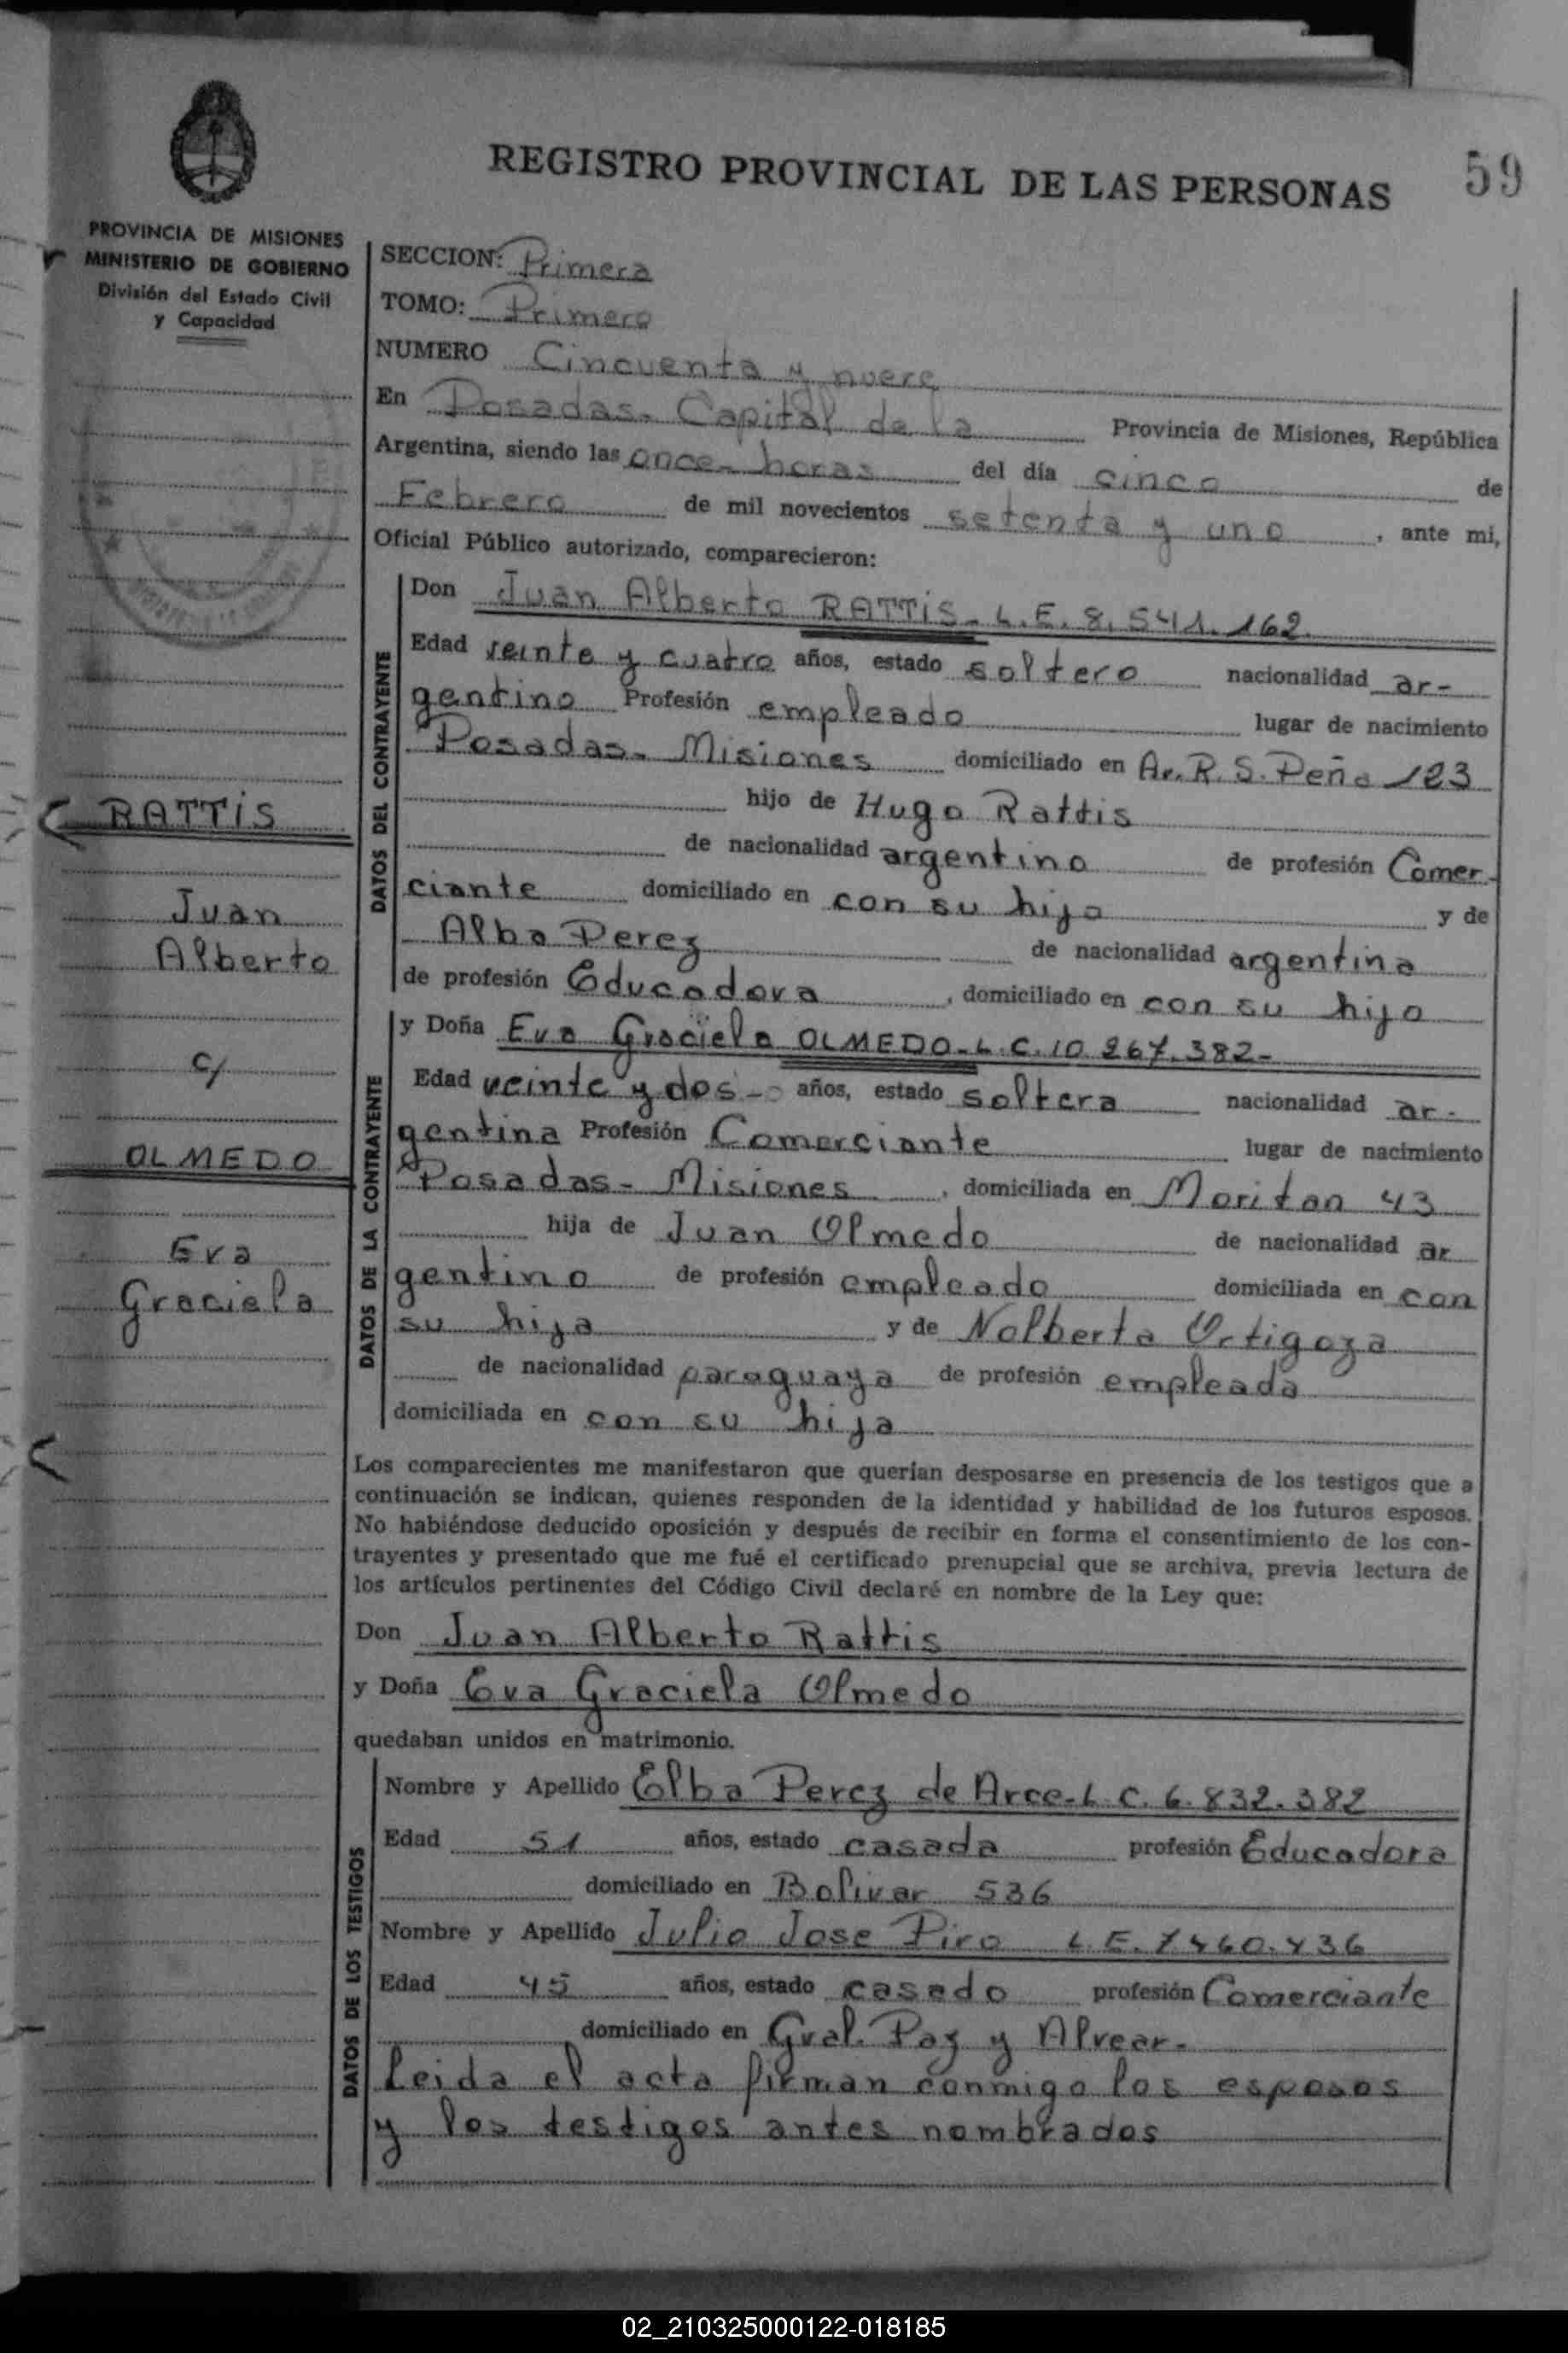 REGISTRO PROVINCIAL DE LAS PERSONAS
59
PROVINCIA DE MISIONES
MINISTERIO DE GOBIERNO
División del Estado Civil
y Capacidad
RATTIS
Juan
Alberto
c/
OLMEDO
Eva
Graciela
SECCION: Primera
TOMO: Primero
NUMERO Cincuenta y nueve
En Posadas- Capital de la Provincia de Misiones, República
Argentina, siendo las once- horas del día cinco de
Febrero de mil novecientos setenta y uno, ante mi,
Oficial Público autorizado, comparecieron:
DATOS DEL CONTRAYENTE
Don Juan Alberto RATTIS- L.E. 8.541.162.
Edad veinte y cuatro años, estado soltero nacionalidad ar-
gentino Profesión empleado lugar de nacimiento
Posadas- Misiones domiciliado en Av. R. S. Peña 123
hijo de Hugo Rattis
de nacionalidad argentino de profesión Comer-
ciante domiciliado en con su hijo y de
Alba Perez de nacionalidad argentina
de profesión Educadora, domiciliado en con su hijo
DATOS DE LA CONTRAYENTE
y Doña Eva Graciela OLMEDO- L.C. 10.267.382-
Edad veinte y dos- años, estado soltera nacionalidad ar-
gentina Profesión Comerciante lugar de nacimiento
Posadas- Misiones, domiciliada en Moritan 43
hija de Juan Olmedo de nacionalidad ar
gentino de profesión empleado domiciliada en con
su hija y de Nolberta Ortigoza
de nacionalidad paraguaya de profesión empleada
domiciliada en con su hija
Los comparecientes me manifestaron que querían desposarse en presencia de los testigos que a
continuación se indican, quienes responden de la identidad y habilidad de los futuros esposos.
No habiéndose deducido oposición y después de recibir en forma el consentimiento de los con-
trayentes y presentado que me fué el certificado prenupcial que se archiva, previa lectura de
los artículos pertinentes del Código Civil declaré en nombre de la Ley que:
Don Juan Alberto Rattis
y Doña Eva Graciela Olmedo
quedaban unidos en matrimonio.
DATOS DE LOS TESTIGOS
Nombre y Apellido Elba Perez de Arce- L.C. 6.832.382
Edad 51 años, estado casada profesión Educadora
domiciliado en Bolivar 536
Nombre y Apellido Julio Jose Piro L.E.
Edad 45 años, estado casado profesión Comerciante
domiciliado en Gral. Paz y Alvear-
Leida el acta firman conmigo los esposos
y los testigos antes nombrados
02_210325000122-018185